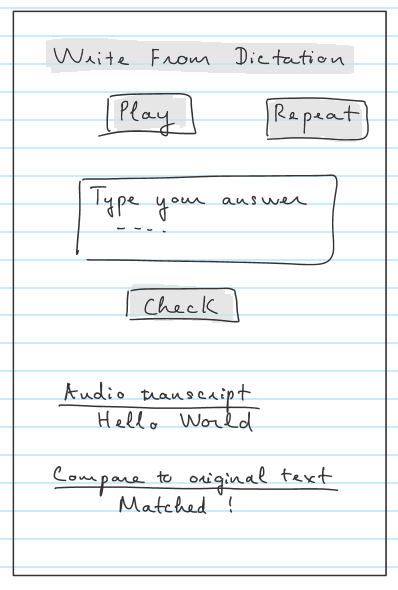 Write From Dictation
Play Repeat
Type your answer
----
Check
Audio transcript
Hello World
Compare to original text
Matched !